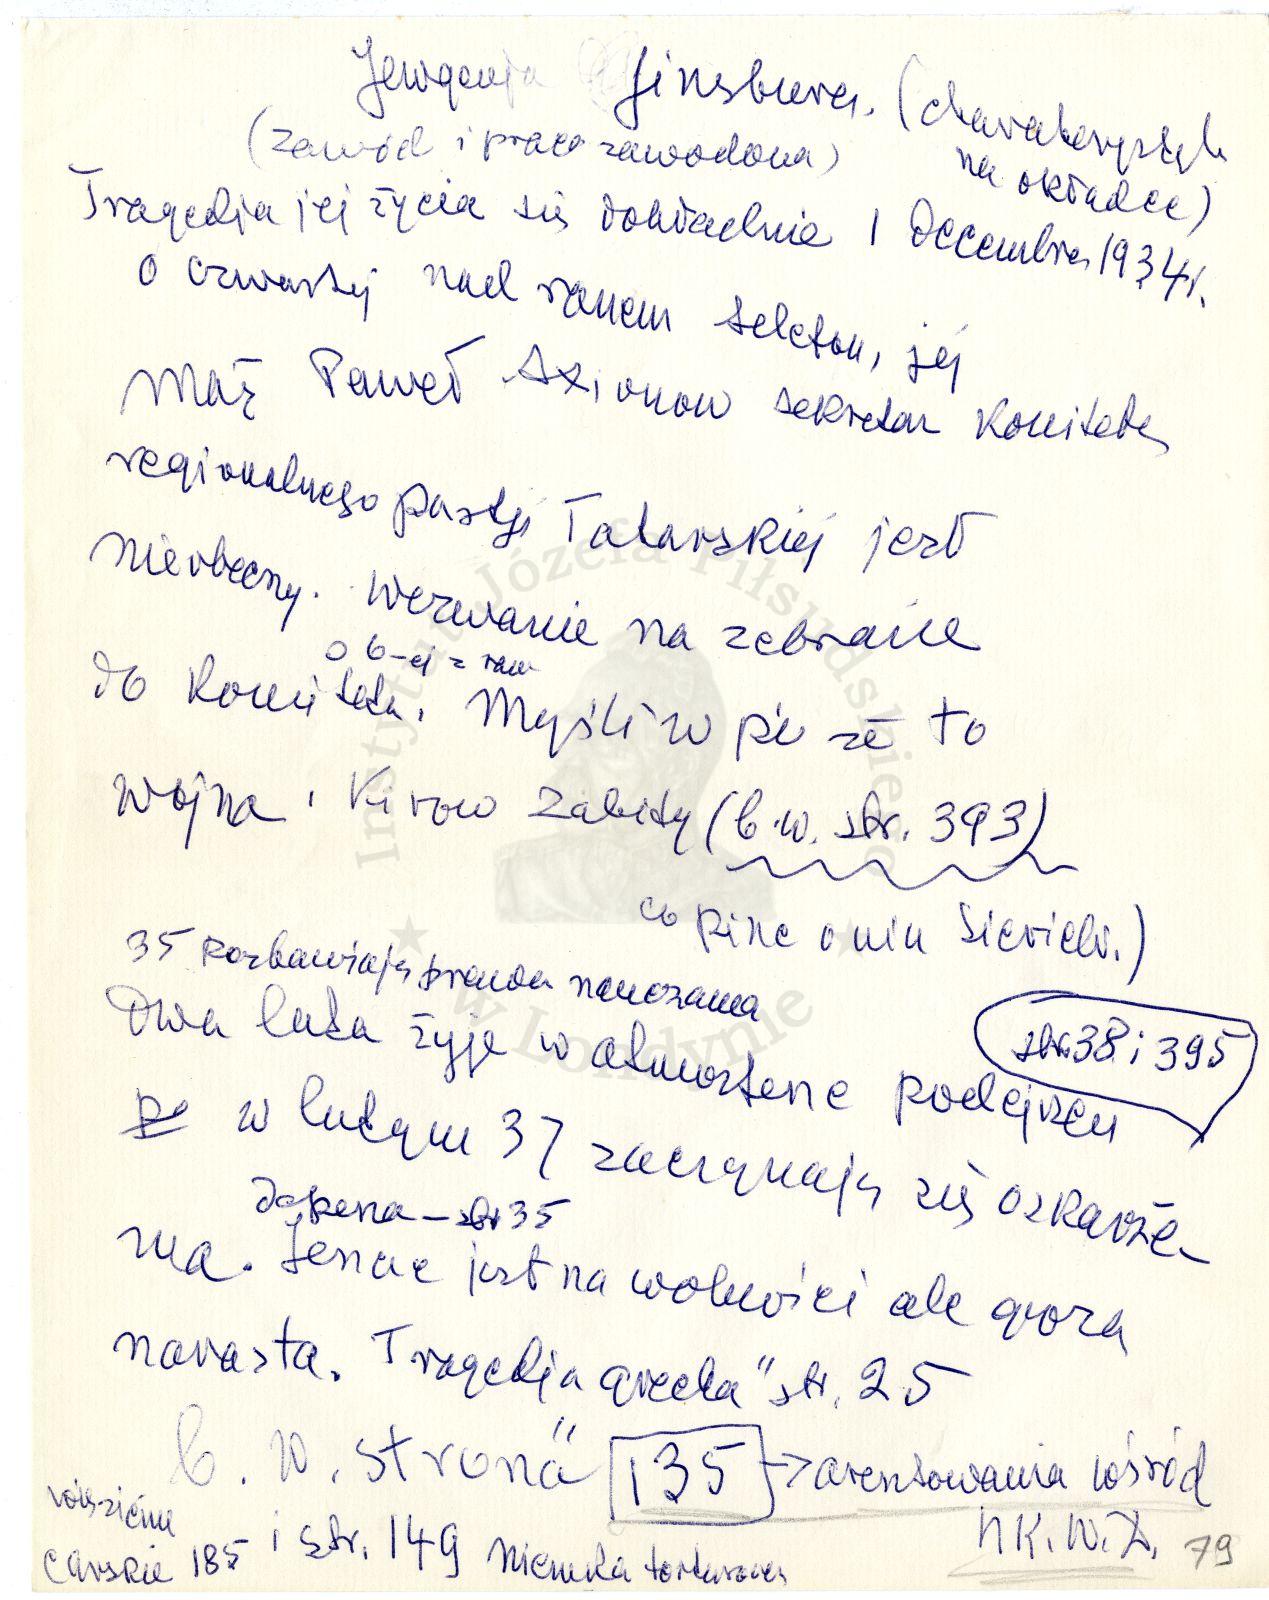 Jewgenja Ginsburg. (charakterystyk
na okładce)
(zawód i praca zawodowa)
Tragedja jej życia się dokładnie 1 Decembra 1934 r.
O czwartej nad ranem telefon, jej
mąż Paweł Axionow sekretarz Komitetu
regionalnego partji Tatarskiej jest
nieobecny. Wezwanie na zebranie
o 6-ej z rana
do Komitetu. Myśli w że to
wojna. Kirow zabity (b.w. str. 393)
co pisze o nim Sierieb.)
35 pozbawiają prawa nauczania
Dwa lata żyje w atmosferze podejrzeń
str. 38 i 395
w lutym 37 zaczynają się oskarże-
dopena – str 35
nia. Jeszcze jest na wolności ale groza
narasta. Tragedja grecka" str. 25
b. w. strona" 135 → aresztowania wśród
N.K.W.D. 79
więzienie
carskie 185 i str. 149 Niemka torturowana
Instytut Józefa Piłsudskiego
w Londynie